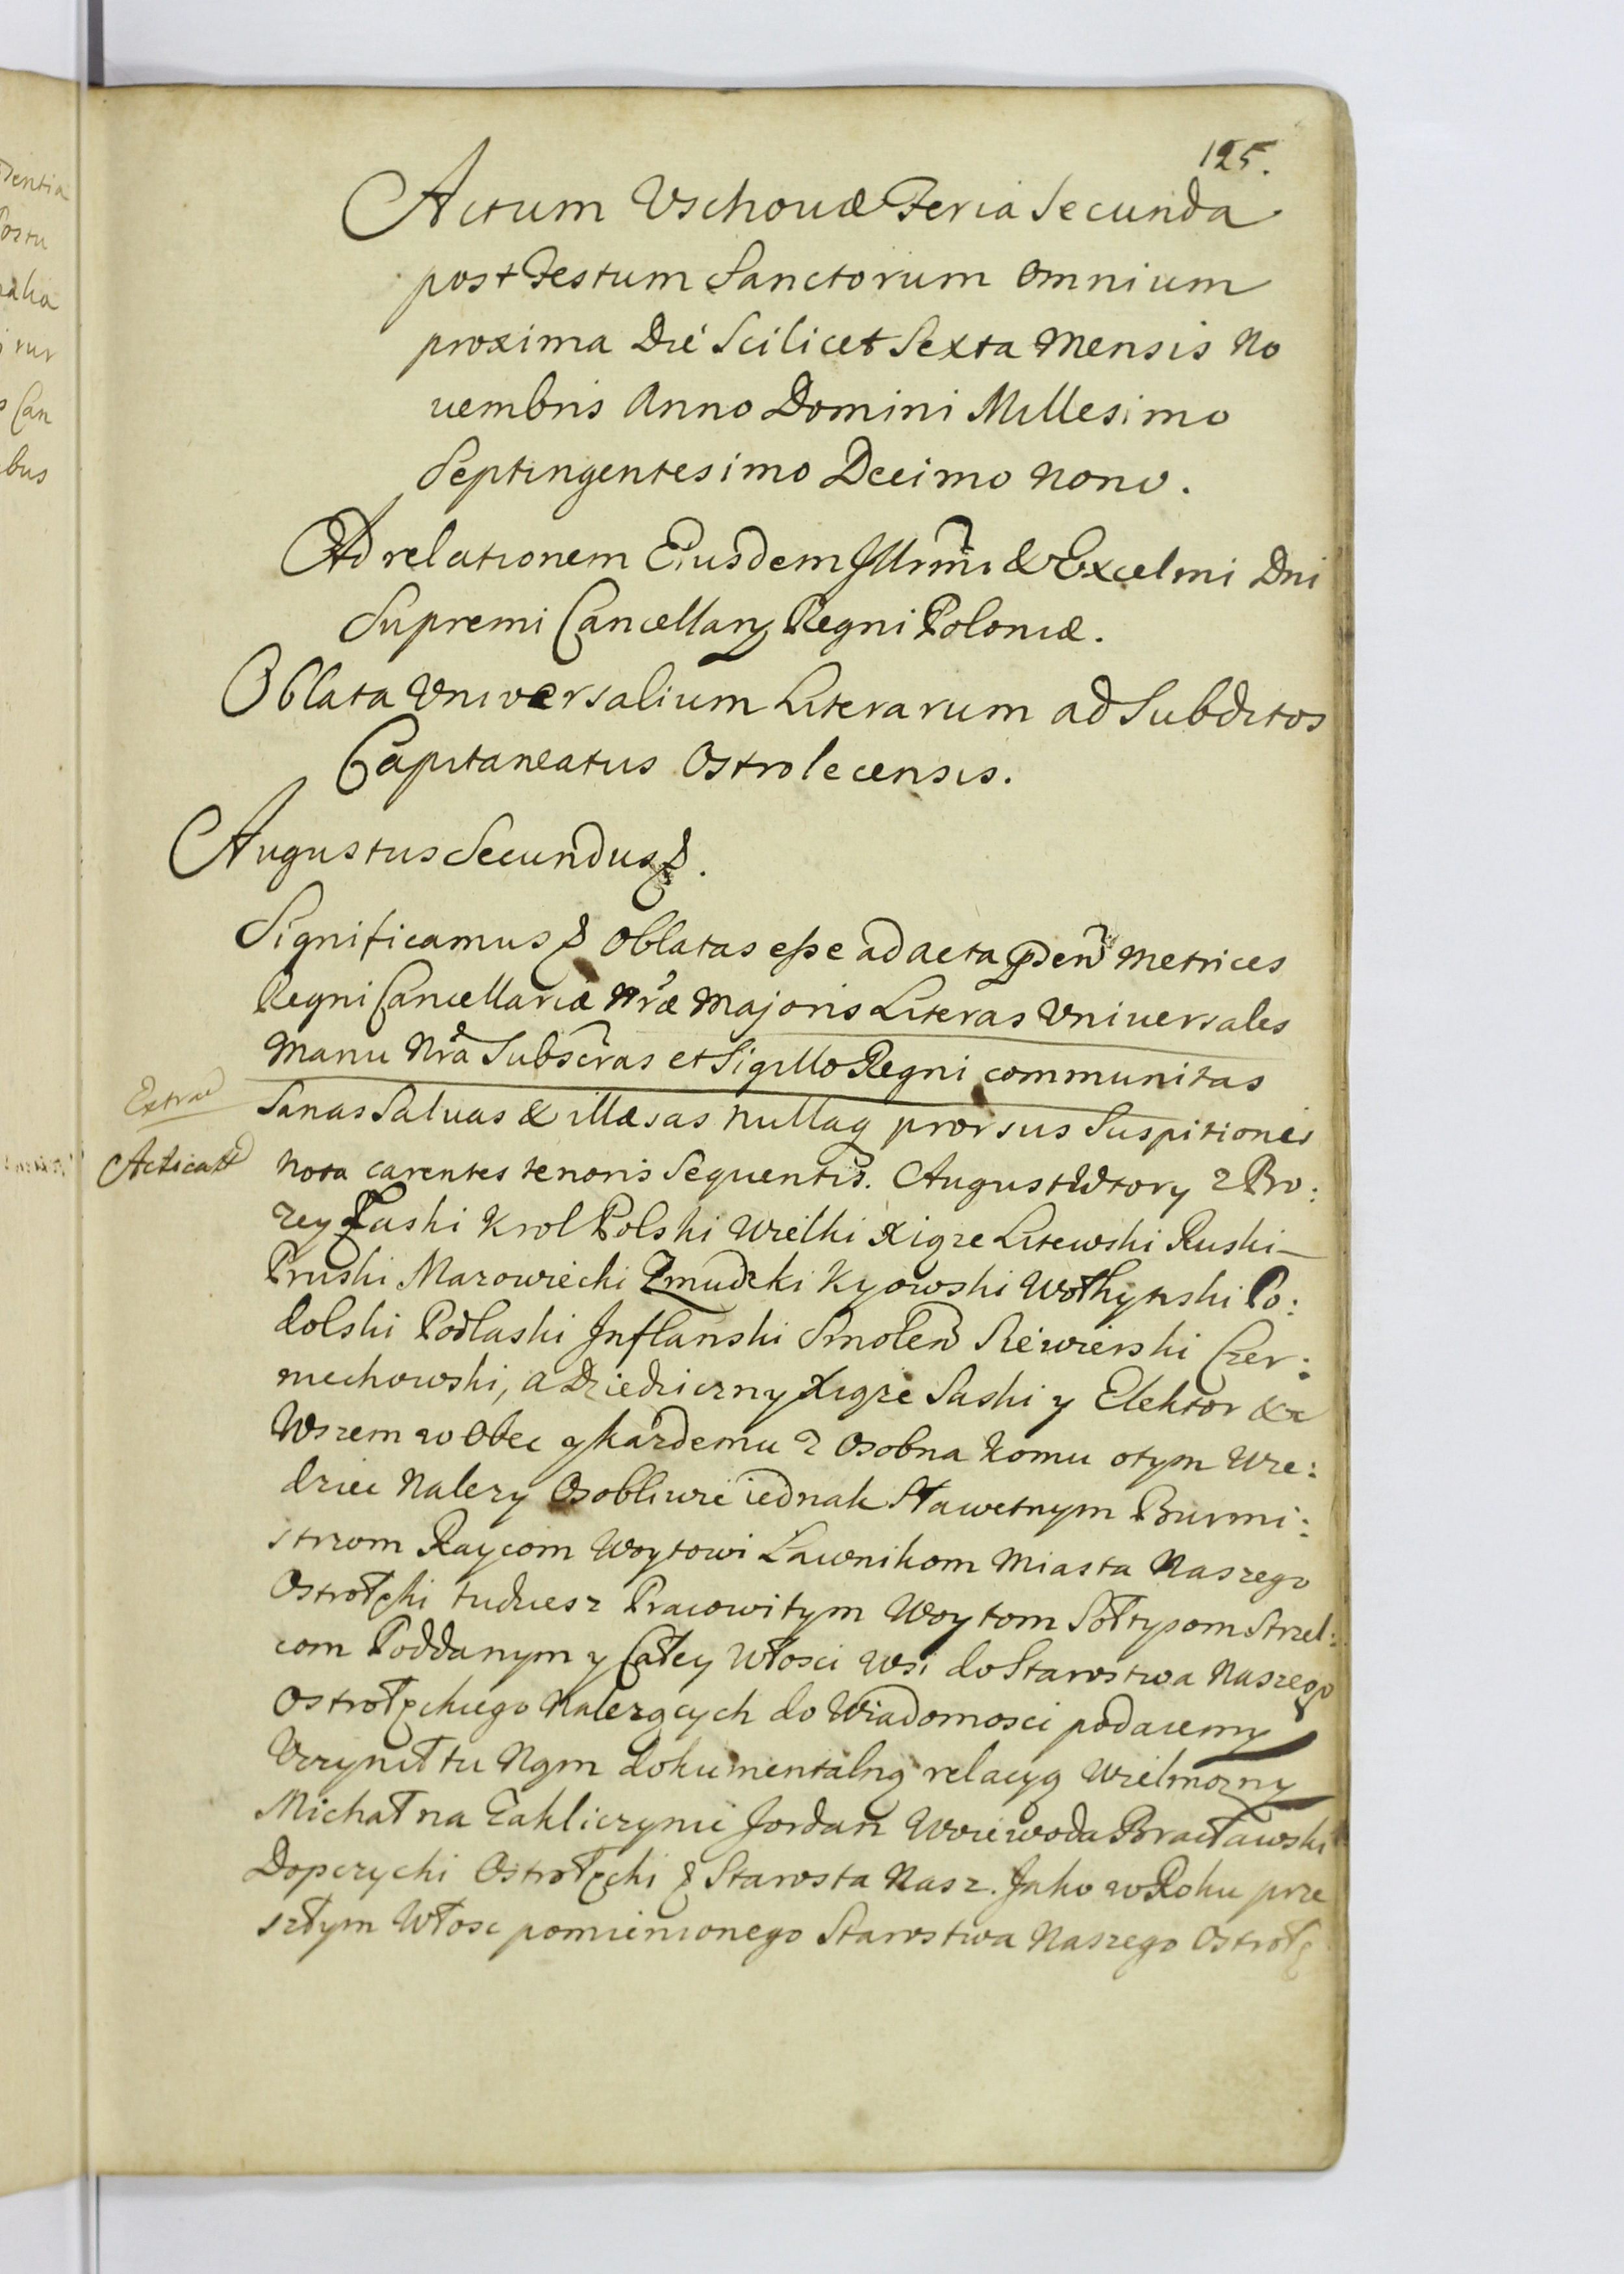 125.
Actum Vschovæ Feria Secunda
post Festum Sanctorum omnium
proxima Die Scilicet Sexta Mensis No
uembris Anno Domini Millesimo
Septingentesimo Decimo nono.
Ad relationem Eiusdem Illrmi & Excelmi Dni
Supremi Cancellarij Regni Poloniæ.
Oblata Vniversalium Literarum ad Subditos
Capitaneatus Ostrolecensis.
Augustus Secundus &.
Significamus & oblatas esse ad acta pden Metrices
Regni Cancellariæ Nræ Majoris Literas Vniuersales
Manu Nra Subscras et Sigillo Regni communitas
Extrad
Sanas Saluas & illæsas nullaq prorsus Suspitionis
Acticatt
nota carentes tenoris Sequentis. August Wtory z Bo:
zey Łaski Krol Polski Wielki Xigze Litewski Ruski
Pruski Mazowiecki Zmudzki Kyowski Wołhynski Po:
dolski Podlaski Inflanski Smolen Siewierski Czer:
niechowski, a Dziedziczny Xigze Saski y Elektor &c
Wszem wobec y kazdemu z osobna komu otym Wie:
dziec Nalezy Osobliwie iednak Sławetnym Burmi:
strzom Raycom Woytowi Lawnikom Miasta Naszego
Ostrołęki tudziesz Pracowitym Woytom Sołtysom Strzel:
com Poddanym y Całey Włosci Wsi do Starostwa Naszego
Ostrołęckiego Nalezących do Wiadomosci podaiemy
Vczynił tu Nąm dokumentalną relacyą Wielmozny
Michał na Zakliczynie Jordan Woiewoda Bracławski
Dopczycki Ostrołęcki & Starosta Nasz. Jako w Roku prze
szłym Włosc pomienionego Starostwa Naszego Ostrołę